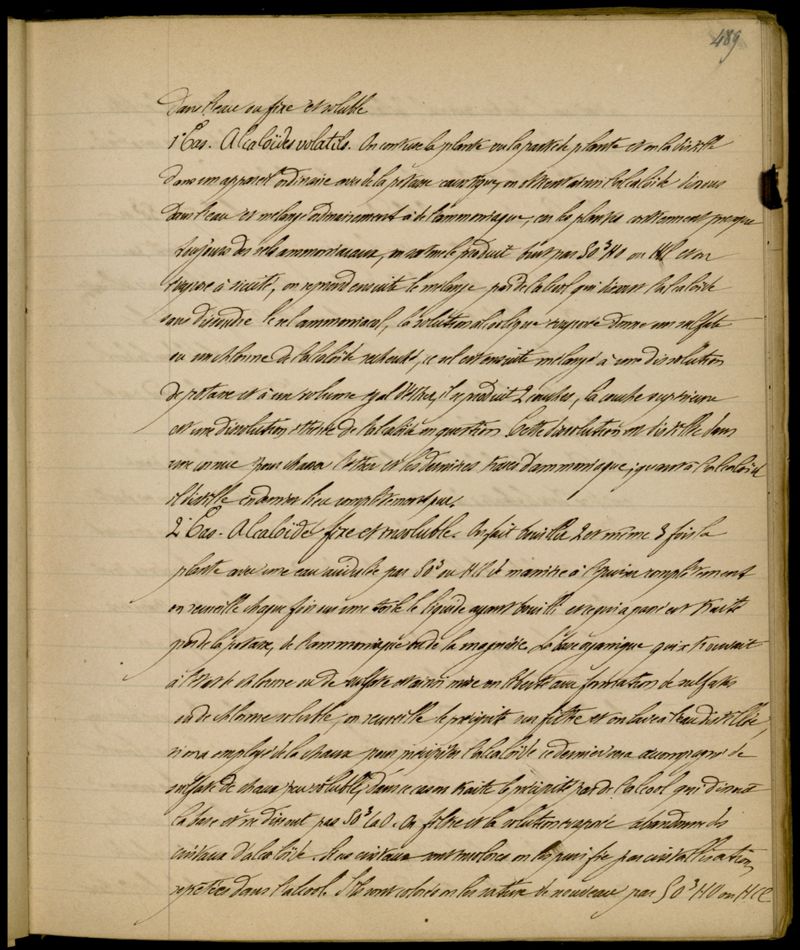 489
dans l'eau ou fixe et soluble
1° Cas. Alcaloïdes volatils. On contuse la plante ou la partie de plante et on la distille
dans un appareil ordinaire avec de la potasse caustique, on obtient ainsi l'alcaloïde dissous
dans l'eau et mélangé ordinairement à de l'ammoniaque, car les plantes contiennent presque
toujours des sels ammoniacaux, on sature le produit brut par SO³HO ou HCl et on
évapore à siccité, on reprend ensuite le mélange par de l'alcool qui dissout l'alcaloïde
sans dissoudre le sel ammoniacal, la solution alcoolique évaporée donne un sulfate
ou un chlorure de l'alcaloïde recherché, ce sel est ensuite mélangé à une dissolution
de potasse et à un volume égal d'éther, il se produit 2 couches, la couche supérieure
est une dissolution éthérée de l'alcaloïde en question. Cette dissolution est distillée dans
une cornue pour chasser l'éther et les dernières traces d'ammoniaque, quant à l'alcaloïde
il distille en dernier lieu complètement pur.
2° Cas. Alcaloïde fixe et insoluble. On fait bouillir 2 et même 3 fois la
plante avec une eau acidulée par SO³ ou HCl de manière à l'épuiser complètement
on recueille chaque fois sur une toile le liquide ayant bouilli et ce qui a passé est traité
par de la potasse, de l'ammoniaque ou de la magnésie. La base organique qui se trouvait
à l'état de chlorure ou de sulfate est ainsi mise en liberté avec formation de sulfates
ou de chlorures solubles, on recueille le précipité sur filtre et on lave à l'eau distillée,
si on a employé de la chaux pour précipiter l'alcaloïde ce dernier sera accompagné de
sulfate de chaux peu soluble, dans ce cas on traite le précipité par de l'alcool qui dissout
la base et ne dissout pas SO³CaO. On filtre et la solution évaporée abandonne des
cristaux d'alcaloïde. Si ces cristaux sont incolores on les purifie par cristallisations
répétées dans l'alcool. S'ils sont colorés on les sature de nouveau par SO³HO ou HCl